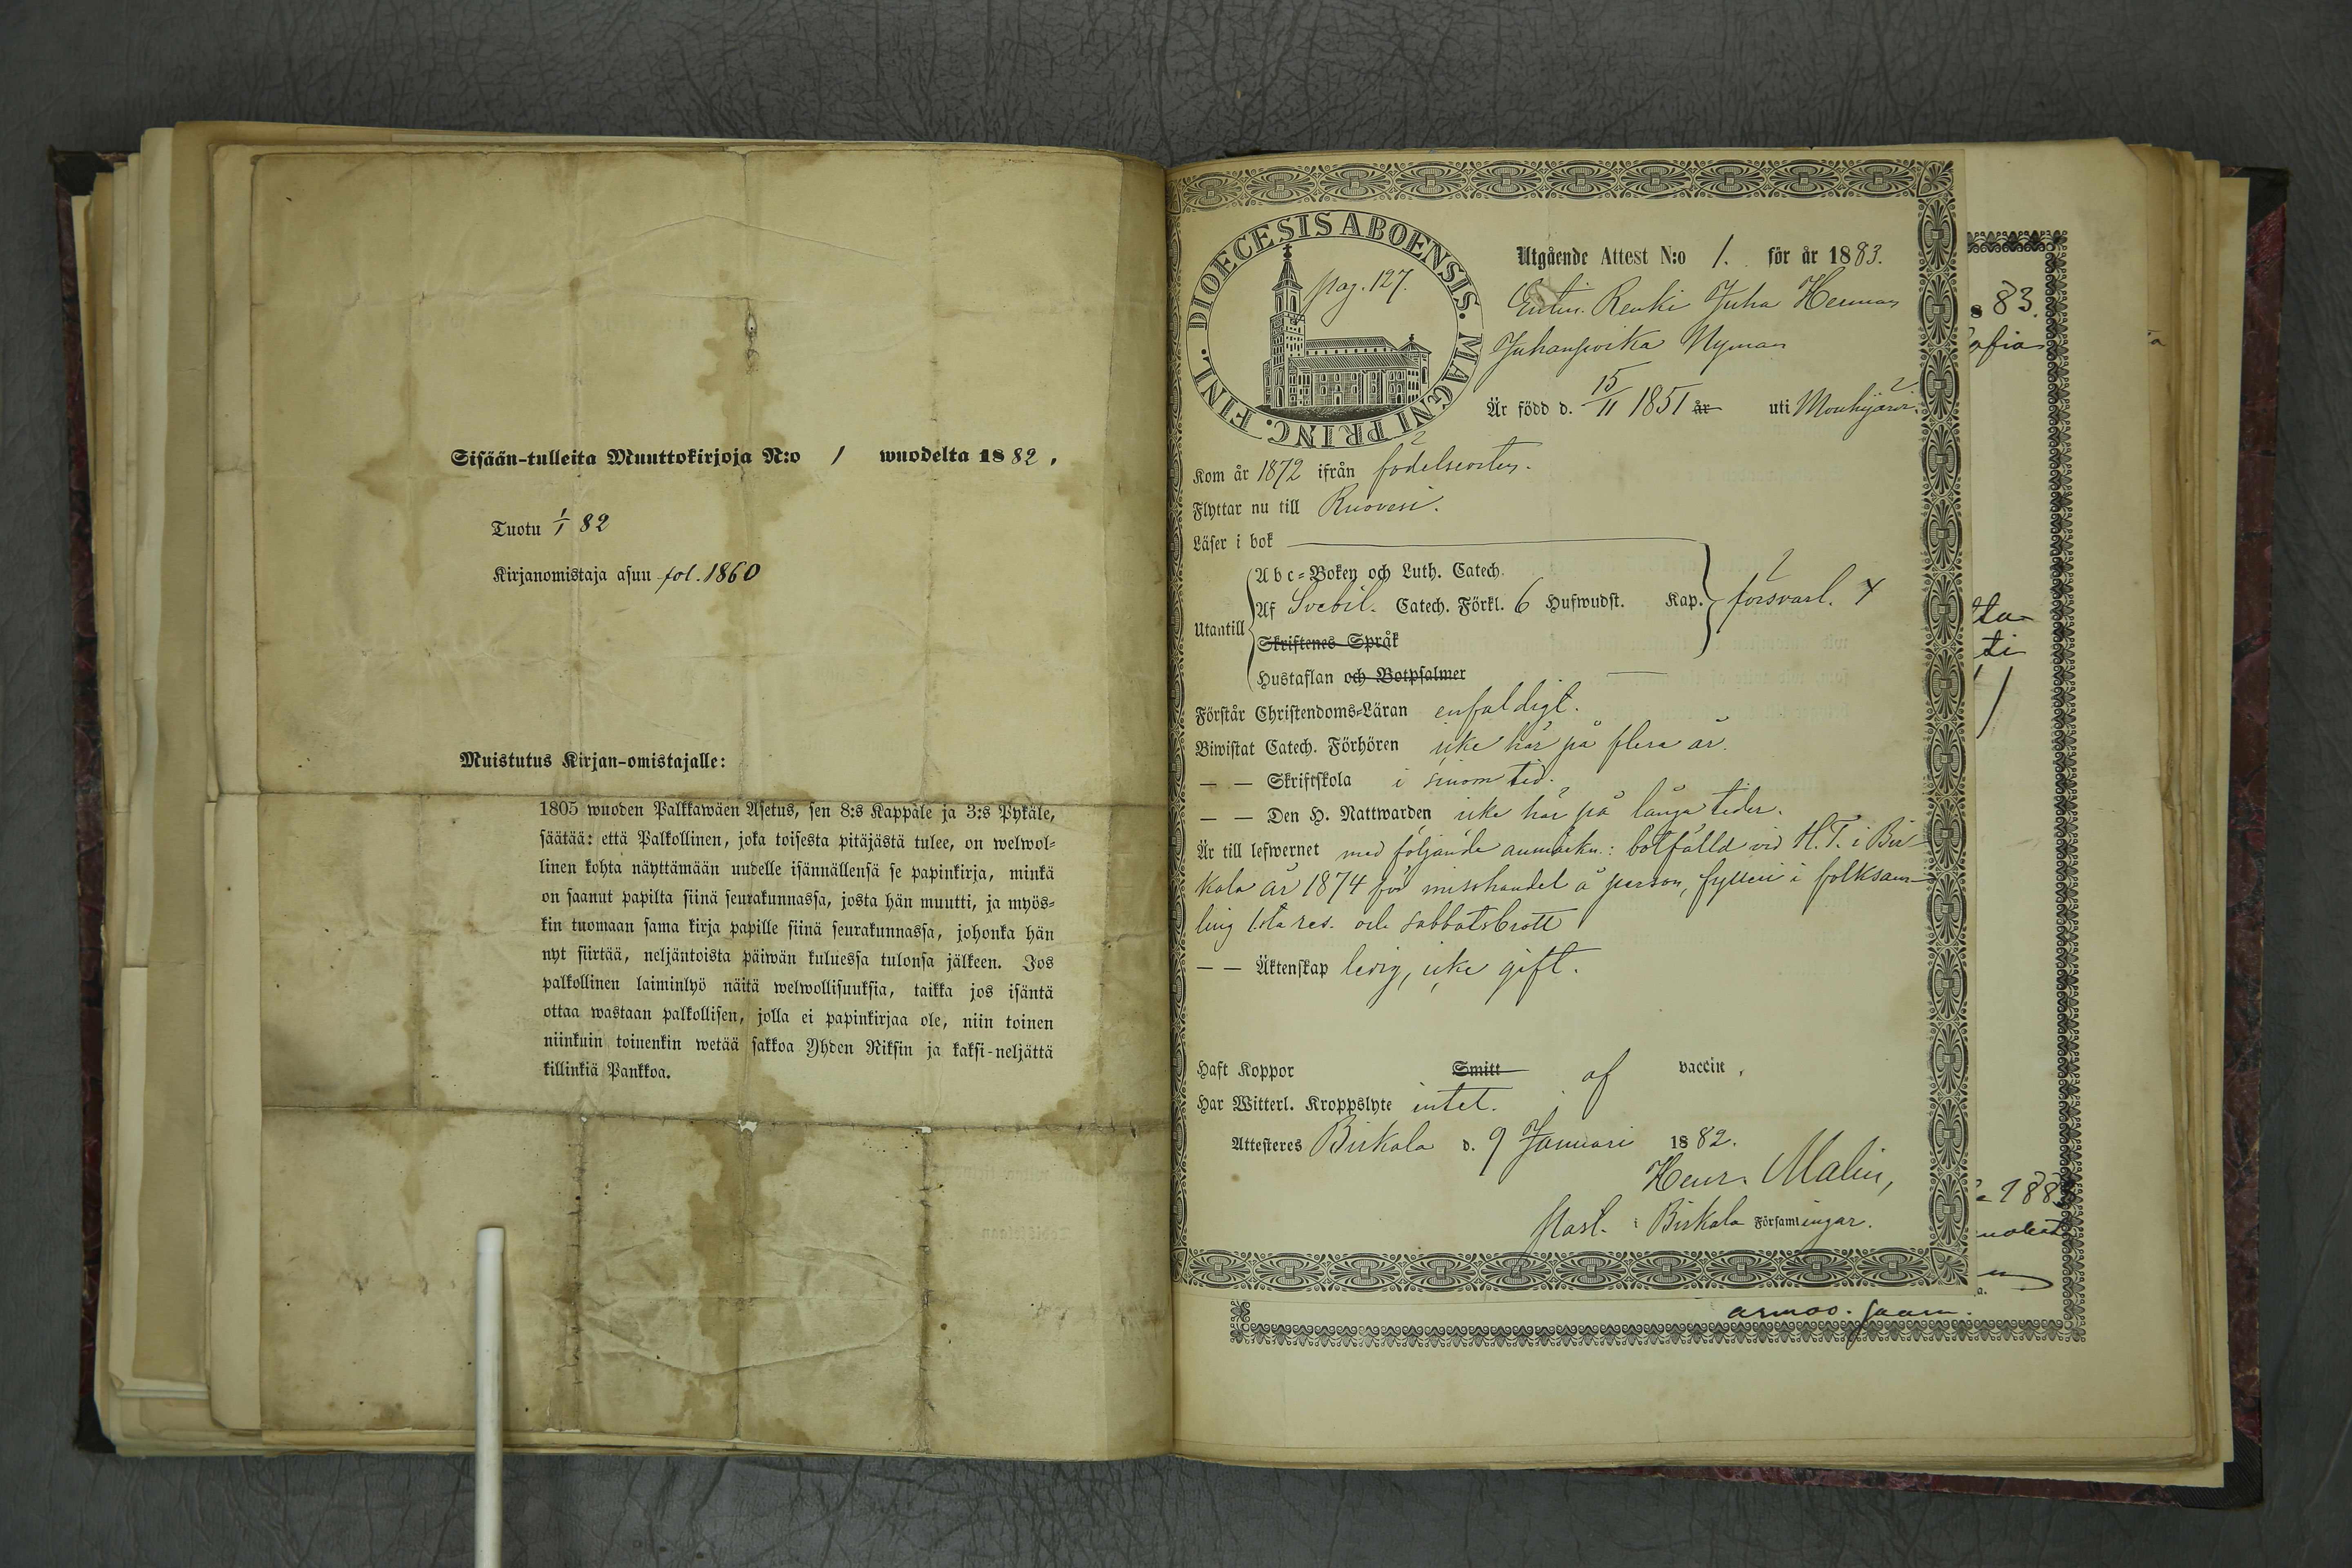 Sisään-tulleita Muuttokirjoja N:o 1 wuodelta 1882.
Tuotu 1/1 82
Kirjanomistaja asuu fol. 1860
Muistutus Kirjan-omistajalle:
1805 wuoden Palkkawäen Asetus, sen 8:s Kappale ja 3:s Pykäle,
säätää: että Palkollinen, joka toisesta pitäjästä tulee, on welwol-
linen kohta näyttämään uudelle isännällensä se papinkirja, minkä
on saanut papilta siinä seurakunnassa, josta hän muutti, ja myös-
kin tuomaan sama kirja papille siinä seurakunnassa, johonka hän
nyt siirtää, neljäntoista päiwän kuluessa tulonsa jälkeen. Jos
palkollinen laiminlyö näitä welwollisuuksia, taikka jos isäntä
ottaa wastaan palkollisen, jolla ei papinkirjaa ole, niin toinen
niinkuin toinenkin wetää sakkoa Yhden Riksin ja kaksi-neljättä
killinkiä Pankkoa.
DIOECESIS ABOENSIS. MAGNI PRINC. FINL.
pag. 127.
Utgående Attest N:o 1. för år 1883.
Entin. Renki Juha Herman
Juhanpoika Nyman
Är född d. 15/11 1851 år uti Mouhijärvi.
Kom år 1872 ifrån födelseorten.
Flyttar nu till Ruovesi.
Läser i bok
Utantill
Abc-Boken och Luth. Catech.
Af Svebil. Catech. Förkl. 6 Hufwudst. Kap. försvarl.
Skriftenes Språk
Hustaflan och Botpsalmer
Förstår Christendoms-Läran enfaldigt.
Biwistat Catech. Förhören icke här på flera år.
— — Skriftskola i sinom tid.
— — Den H. Nattwarden icke här på långa tider.
Är till lefwernet med följande anmärkn.: botfälld vid H.T. i Bir-
kala år 1874 för misshandel å person, fylleri i folksam-
ling 1sta res. och sabbatsbrott
— — Äktenskap ledig, icke gift.
Haft Koppor Smitt af vaccin.
Har Witterl. Kroppslyte intet.
Attesteres Birkala d. 9 Januari 1882.
Henr. Malin,
Past. i Birkala Församlingar.
83.
ofia
ta
ti
armoo.